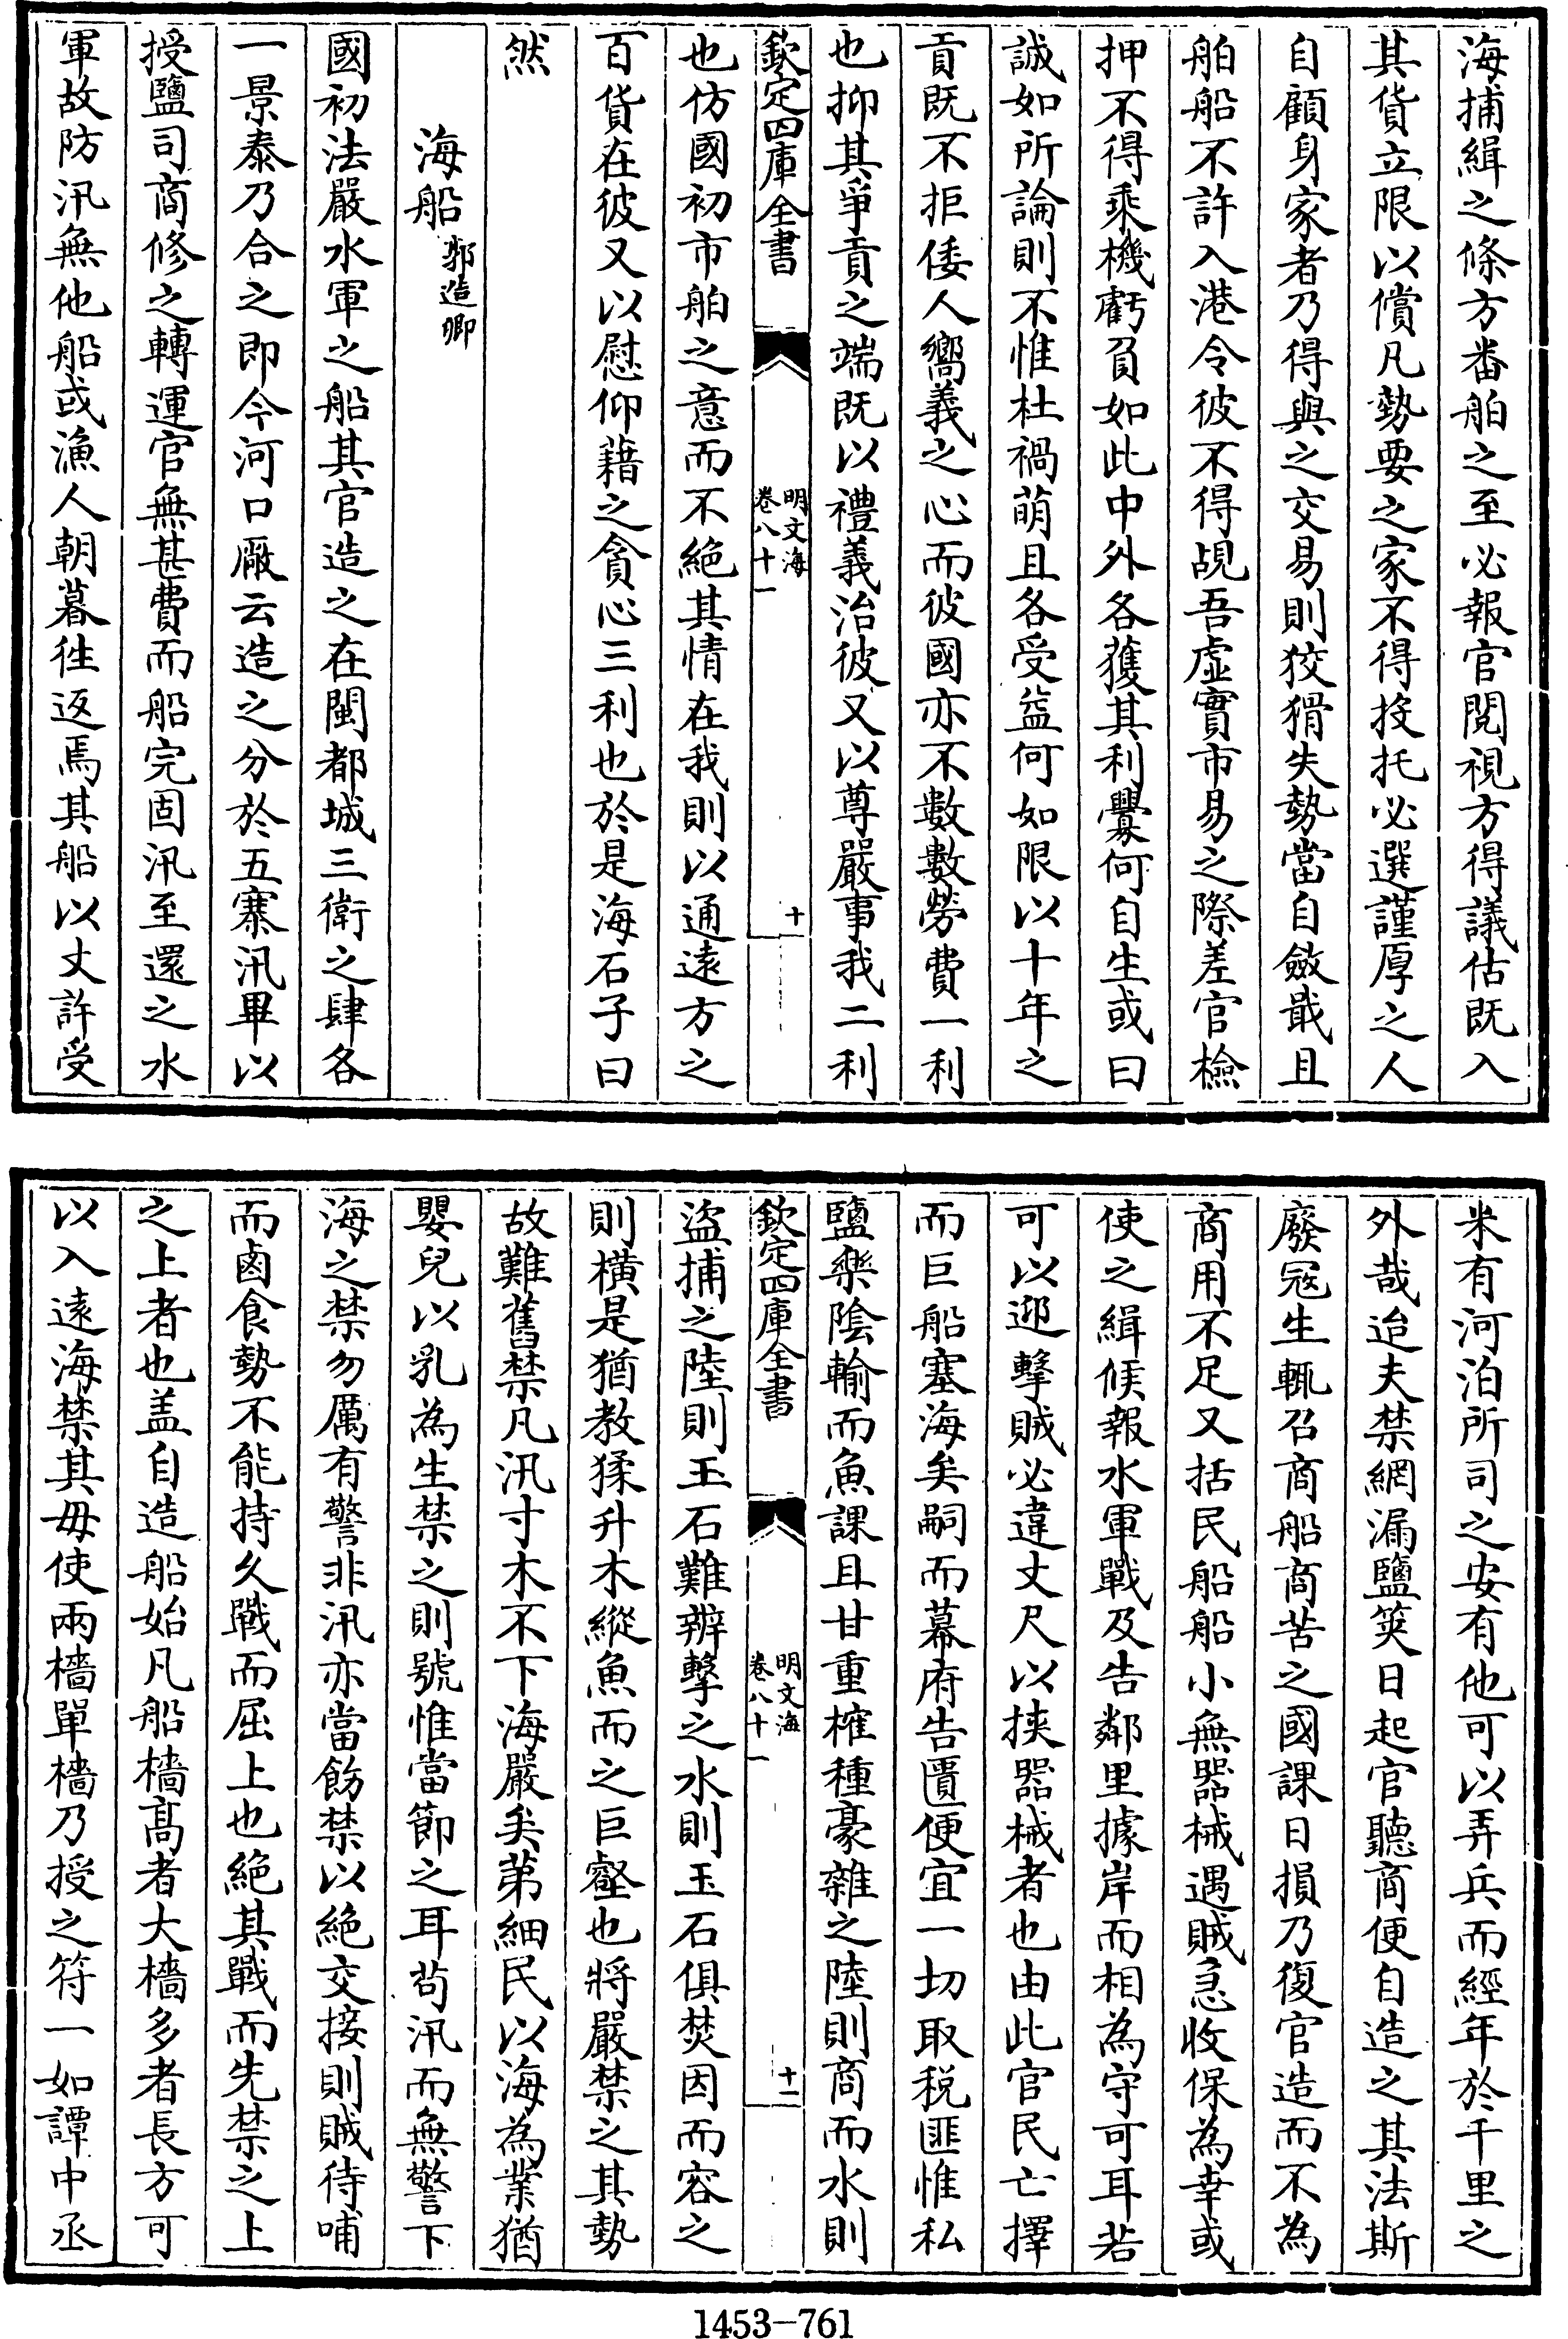 海捕緝之條方番舶之至必報官閱視方得議估既入
其貨立限以償凡勢要之家不得投托必選謹厚之人
自顧身家者乃得與之交易則狡猾失勢當自斂戢且
舶船不許入港令彼不得覘吾虛實市易之際差官檢
押不得乘機虧負如此中外各獲其利釁何自生或曰
誠如所論則不惟杜禍萌且各受益何如限以十年之
貢既不拒倭人嚮義之心而彼國亦不數數勞費一利
也抑其爭貢之端既以禮義治彼又以尊嚴事我二利
欽定四庫全書 明文海 卷八十一 十
也仿國初市舶之意而不絕其情在我則以通遠方之
百貨在彼又以慰仰藉之貪心三利也於是海石子曰
然
海船 郭造卿
國初法嚴水軍之船其官造之在閩都城三衛之肆各
一景泰乃合之即今河口廠云造之分於五寨汛畢以
授鹽司商修之轉運官無甚費而船完固汛至還之水
軍故防汛無他船或漁人朝暮徃返焉其船以丈許受
米有河泊所司之安有他可以弄兵而經年於千里之
外哉迨夫禁網漏鹽筴日起官聽商便自造之其法斯
廢冦生輒召商船商苦之國課日損乃復官造而不為
商用不足又括民船船小無器械遇賊急收保為幸或
使之緝候報水軍戰及告鄰里據岸而相為守可耳若
可以迎擊賊必違丈尺以挾器械者也由此官民亡擇
而巨船塞海矣嗣而幕府告匱便宜一切取稅匪惟私
鹽樂陰輸而魚課且甘重榷種豪雜之陸則商而水則
欽定四庫全書 明文海 卷八十一 十一
盜捕之陸則玉石難辨擊之水則玉石俱焚因而容之
則橫是猶教猱升木縱魚而之巨壑也將嚴禁之其勢
故難舊禁凡汛寸木不下海嚴矣第細民以海為業猶
嬰兒以乳為生禁之則號惟當節之耳茍汛而無警下
海之禁勿厲有警非汛亦當飭禁以絕交接則賊待哺
而鹵食勢不能持久戰而屈上也絕其戰而先禁之上
之上者也盖自造船始凡船檣髙者大檣多者長方可
以入遠海禁其毋使兩檣單檣乃授之符一如譚中丞
1453-761